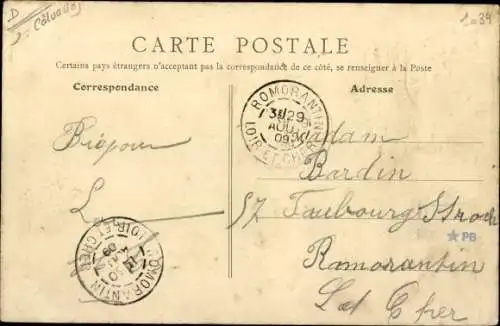 D
Calvados
1.039
CARTE POSTALE
Certains pays étrangers n'acceptant pas la correspondance de ce côté, se renseigner à la Poste
Correspondance
Adresse
ROMORANTIN
AOUT
09
LOIR-ET-CHER
Madam
Bardin
57 Faubourg St roch
PB
Romorantin
Cher
L
ROMORANTIN
LOIR-ET-CHER